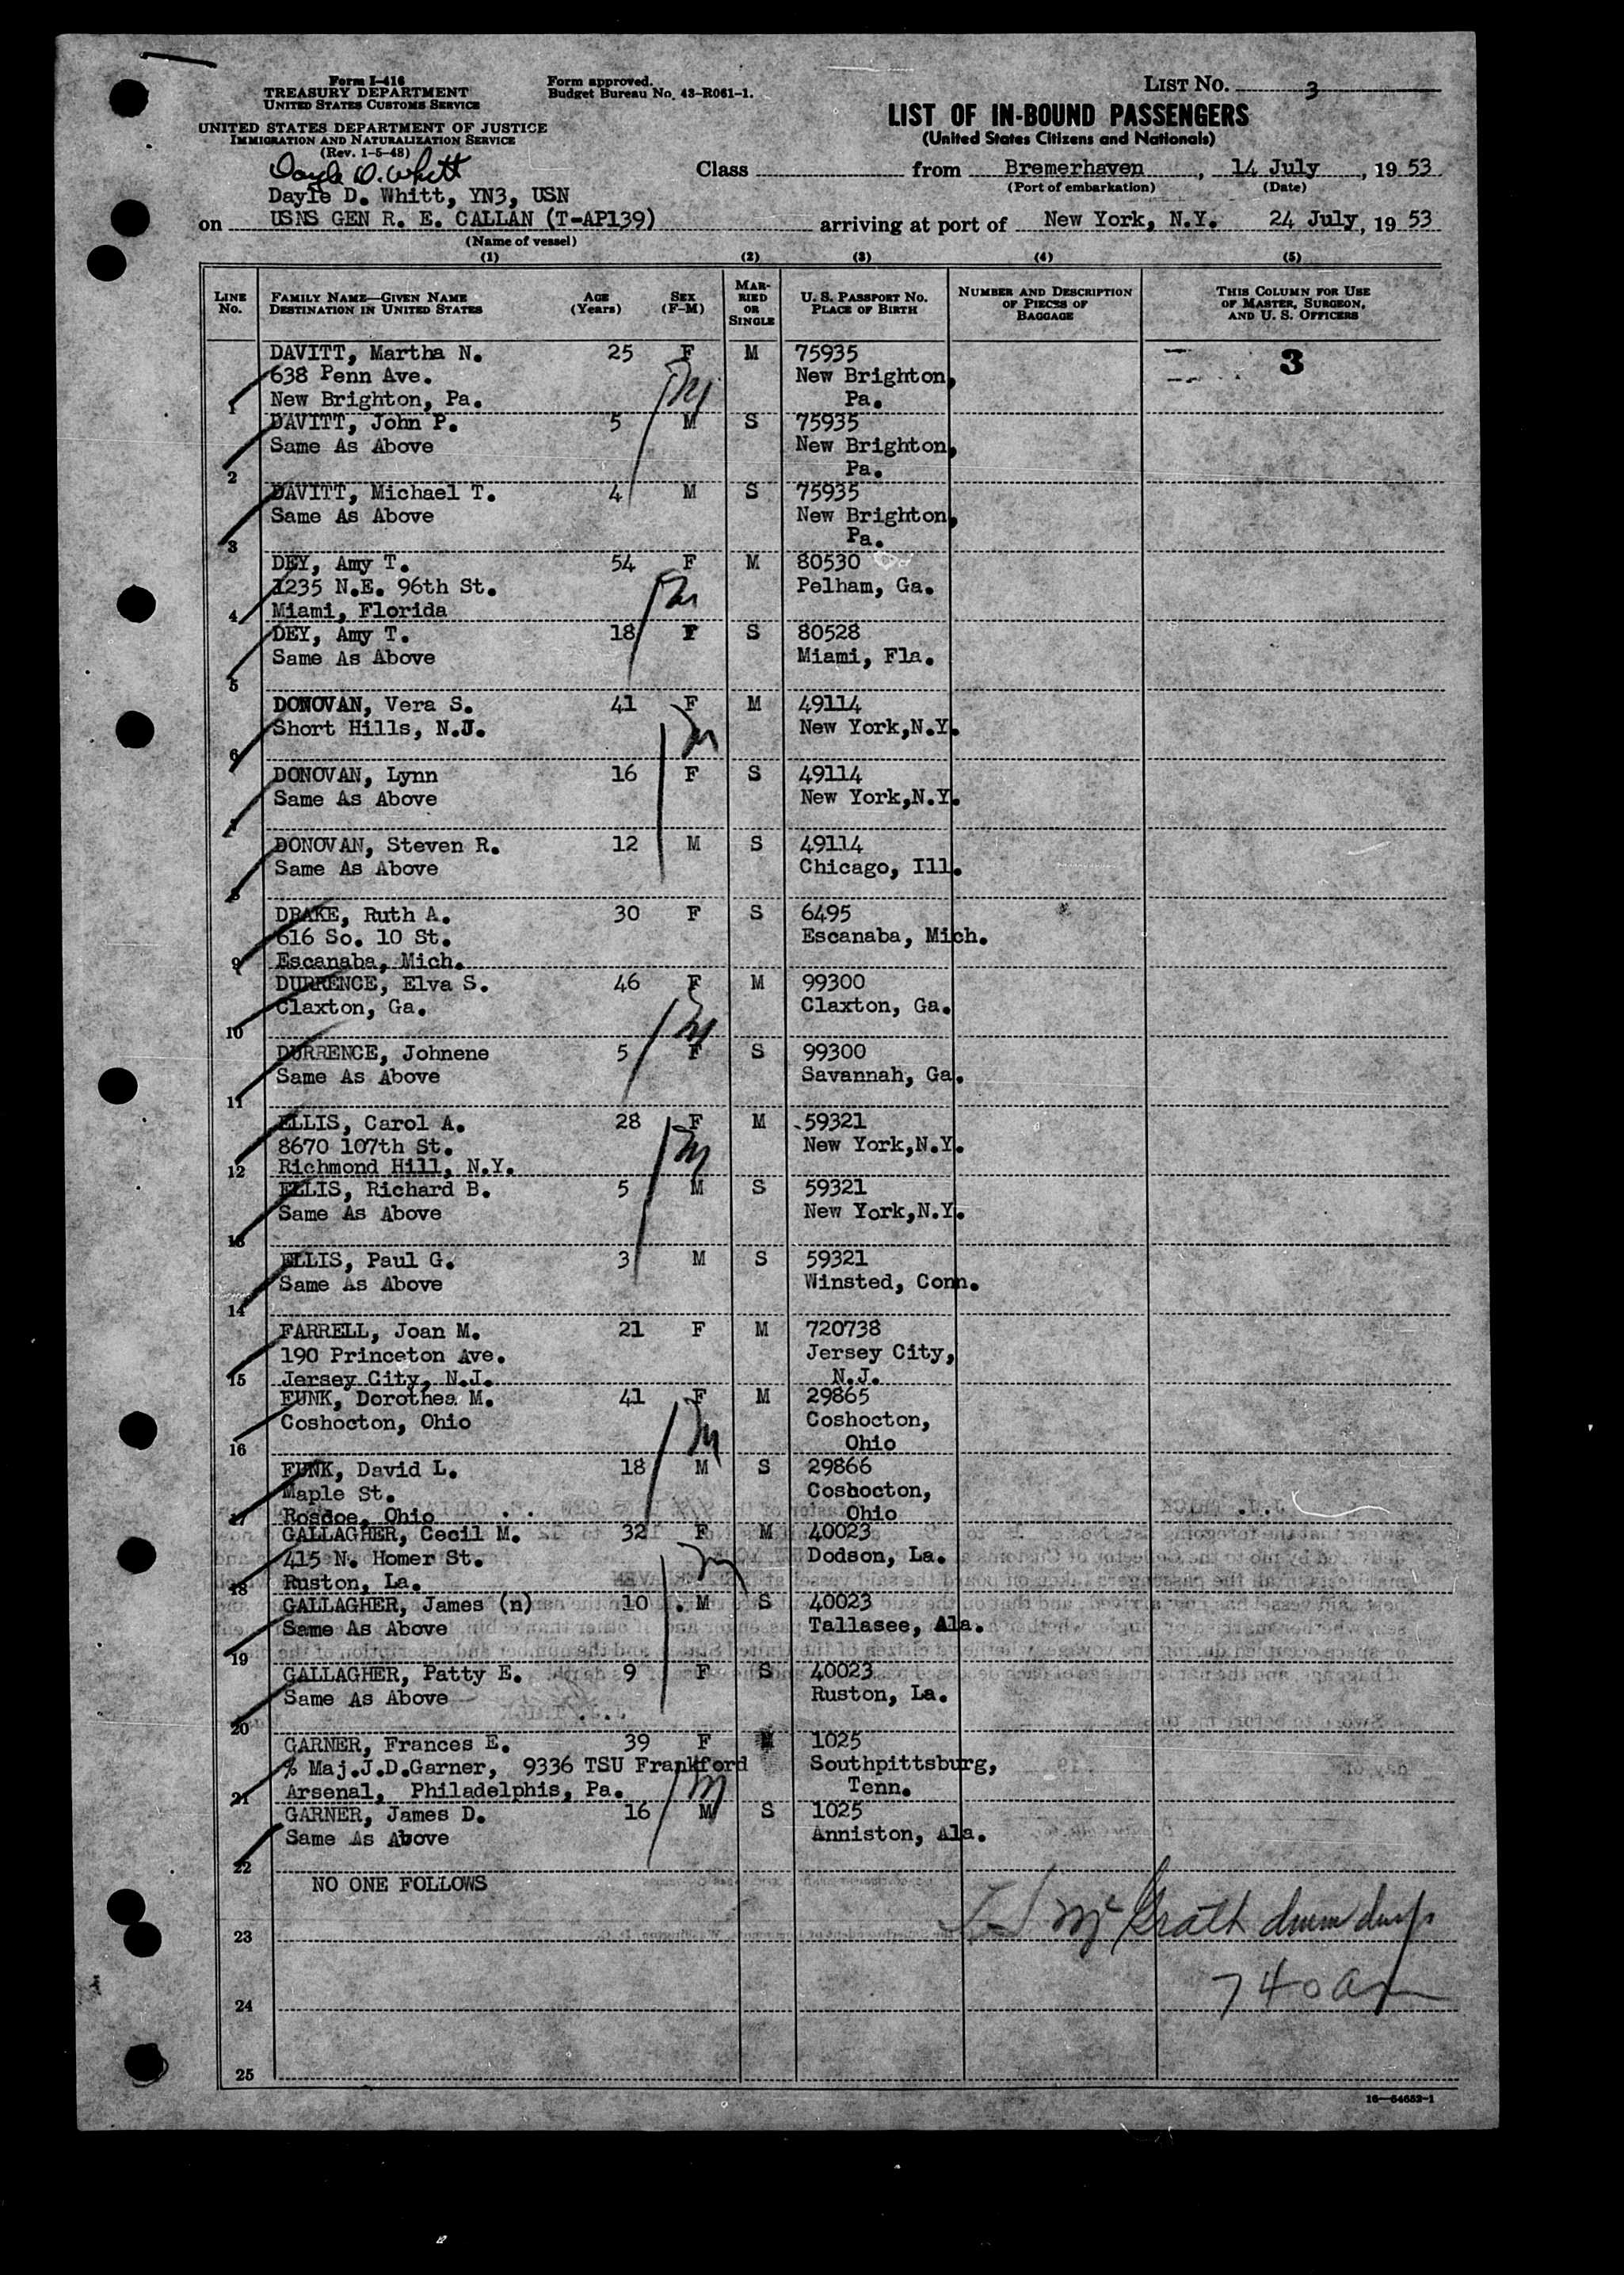 Form I-416
TREASURY DEPARTMENT
UNITED STATES CUSTOMS SERVICE
UNITED STATES DEPARTMENT OF JUSTICE
IMMIGRATION AND NATURALIZATION SERVICE
(Rev. 1-5-48)
Form approved.
Budget Bureau No. 43-R061-1.
LIST No. 3
LIST OF IN-BOUND PASSENGERS
(United States Citizens and Nationals)
Dayle D. Whitt
Dayle D. Whitt, YN3, USN
Class from Bremerhaven, 14 July, 19 53
(Port of embarkation) (Date)
on USNS GEN R. E. CALLAN (T-AP139) arriving at port of New York, N.Y. 24 July, 19 53
(Name of vessel)
(1) (2) (3) (4) (5)
LINE No. FAMILY NAME—GIVEN NAME DESTINATION IN UNITED STATES AGE (Years) SEX (F-M) MARRIED OR SINGLE U. S. PASSPORT No. PLACE OF BIRTH NUMBER AND DESCRIPTION OF PIECES OF BAGGAGE THIS COLUMN FOR USE OF MASTER, SURGEON, AND U. S. OFFICERS
DAVITT, Martha N. 25 F M 75935 3
638 Penn Ave. New Brighton,
1 New Brighton, Pa. Pa.
DAVITT, John P. 5 M S 75935
Same As Above New Brighton,
2 Pa.
DAVITT, Michael T. 4 M S 75935
Same As Above New Brighton,
3 Pa.
DEY, Amy T. 54 F M 80530
1235 N.E. 96th St. Pelham, Ga.
4 Miami, Florida
DEY, Amy T. 18 F S 80528
Same As Above Miami, Fla.
5
DONOVAN, Vera S. 41 F M 49114
Short Hills, N.J. New York,N.Y.
6
DONOVAN, Lynn 16 F S 49114
Same As Above New York,N.Y.
7
DONOVAN, Steven R. 12 M S 49114
Same As Above Chicago, Ill.
8
DRAKE, Ruth A. 30 F S 6495
616 So. 10 St. Escanaba, Mich.
9 Escanaba, Mich.
DURRENCE, Elva S. 46 F M 99300
Claxton, Ga. Claxton, Ga.
10
DURRENCE, Johnene 5 F S 99300
Same As Above Savannah, Ga.
11
ELLIS, Carol A. 28 F M 59321
8670 107th St. New York,N.Y.
12 Richmond Hill, N.Y.
ELLIS, Richard B. 5 M S 59321
Same As Above New York,N.Y.
13
ELLIS, Paul G. 3 M S 59321
Same As Above Winsted, Conn.
14
FARRELL, Joan M. 21 F M 720738
190 Princeton Ave. Jersey City,
15 Jersey City, N.J. N.J.
FUNK, Dorothea M. 41 F M 29865
Coshocton, Ohio Coshocton,
16 Ohio
FUNK, David L. 18 M S 29866
Maple St. Coshocton,
17 Roscoe, Ohio Ohio
GALLAGHER, Cecil M. 32 F M 40023
415 N. Homer St. Dodson, La.
18 Ruston, La.
GALLAGHER, James (n) 10 M S 40023
Same As Above Tallasee, Ala.
19
GALLAGHER, Patty E. 9 F S 40023
Same As Above Ruston, La.
20
GARNER, Frances E. 39 F M 1025
% Maj.J.D.Garner, 9336 TSU Frankford Southpittsburg,
21 Arsenal, Philadelphis, Pa. Tenn.
GARNER, James D. 16 M S 1025
Same As Above Anniston, Ala.
22
NO ONE FOLLOWS
McGrath
23
740 am
24
25
16—54652-1